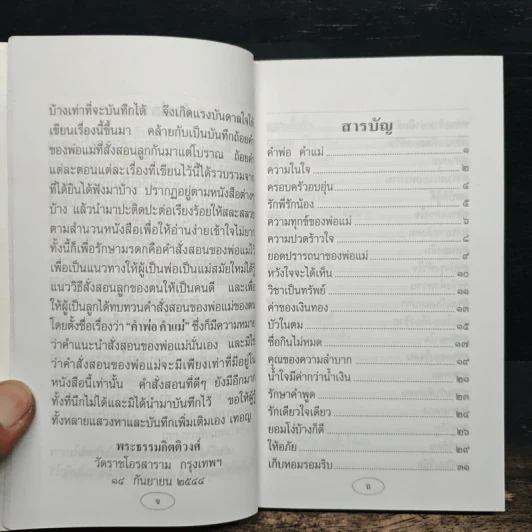 บ้างเท่าที่จะบันทึกได้ จึงเกิดแรงบันดาลใจให้
เขียนเรื่องนี้ขึ้นมา คล้ายกับเป็นบันทึกถ้อยคำ
ของพ่อแม่ที่สั่งสอนลูกกันมาแต่โบราณ ถ้อยคำ
แต่ละตอนแต่ละเรื่องที่เขียนไว้นี้ได้รวบรวมจาก
ที่ได้ยินได้ฟังมาบ้าง ปรากฏอยู่ตามหนังสือต่างๆ
บ้าง แล้วนำมาปะติดปะต่อเรียงร้อยให้สละสลวย
ตามสำนวนหนังสือเพื่อให้อ่านง่ายเข้าใจไม่ยาก
ทั้งนี้ก็เพื่อรักษามรดกคือคำสั่งสอนของพ่อแม่ไว้
เพื่อเป็นแนวทางให้ผู้เป็นพ่อเป็นแม่สมัยใหม่ได้
แนววิธีสั่งสอนลูกของตนให้เป็นคนดี และเพื่อ
ให้ผู้เป็นลูกได้ทบทวนคำสั่งสอนของพ่อแม่ของตน
โดยตั้งชื่อเรื่องว่า “คำพ่อ คำแม่” ซึ่งก็มีความหมาย
ว่าคำแนะนำสั่งสอนของพ่อแม่นั่นเอง และมิใช่
ว่าคำสั่งสอนของพ่อแม่จะมีเพียงเท่าที่มีอยู่ใน
หนังสือนี้เท่านั้น คำสั่งสอนที่ดีๆ ยังมีอีกมาก
ทั้งที่นึกไม่ได้และมิได้นำมาบันทึกไว้ ขอให้ผู้
ทั้งหลายแสวงหาและบันทึกเพิ่มเติมเอง เทอญ
พระธรรมกิตติวงศ์
วัดราชโอรสาราม กรุงเทพฯ
๑๔ กันยายน ๒๕๔๔
สารบัญ
คำพ่อ คำแม่ ๑
ความในใจ ๒
ครอบครัวอบอุ่น ๔
รักพี่รักน้อง ๕
ความทุกข์ของพ่อแม่ ๖
ความปวดร้าวใจ ๘
ยอดปรารถนาของพ่อแม่ ๙
หวังใจจะได้เห็น ๑๐
วิชาเป็นทรัพย์ ๑๑
ค่าของเงินทอง ๑๓
บัวในตม ๑๕
ซื่อกินไม่หมด ๑๗
คุณของความลำบาก ๑๙
น้ำใจมีค่ากว่าน้ำเงิน ๒๑
รักษาคำพูด ๒๓
รักเดียวใจเดียว ๒๔
ยอมโง่บ้างก็ดี ๒๖
ให้อภัย ๒๙
เก็บหอมรอมริบ ๓๑